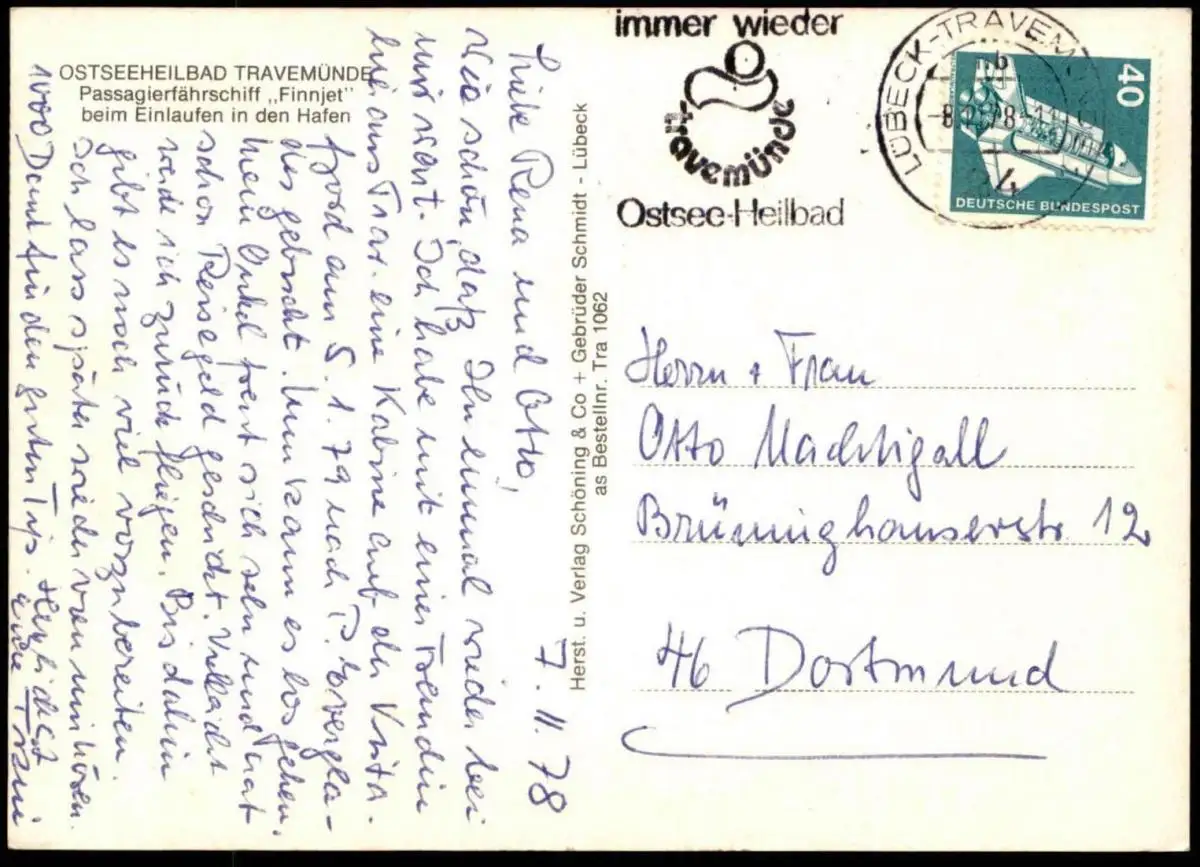 OSTSEEHEILBAD TRAVEMÜNDE
Passagierfährschiff „Finnjet"
beim Einlaufen in den Hafen
7. 11. 78
Liebe Rena und Otto,
Wie schön, daß Ihr einmal wieder bei
mir wart. Ich habe mit einer Freundin
hier aus Trav. eine Kabine auf der Vista
fjord am 5. 1. 79 nach P. Evergla-
des gebucht. Nun kann es los gehen.
Mein Onkel freut sich sehr und hat
schon Reisegeld geschickt. Vielleicht
werde ich zurück fliegen. Bis dahin
gibt es noch viel vorzubereiten.
Ich lass später wieder von mir hören.
1000 Dank für den guten Tip. Herzlichst
eure
Herst. u. Verlag Schöning & Co + Gebrüder Schmidt - Lübeck
as Bestellnr. Tra 1062
immer wieder
travemünde
Ostsee-Heilbad
LÜBECK-TRAVEM
40
DEUTSCHE BUNDESPOST
Herrn + Frau
Otto Nachtigall
Brünninghauserstr. 12
46 Dortmund